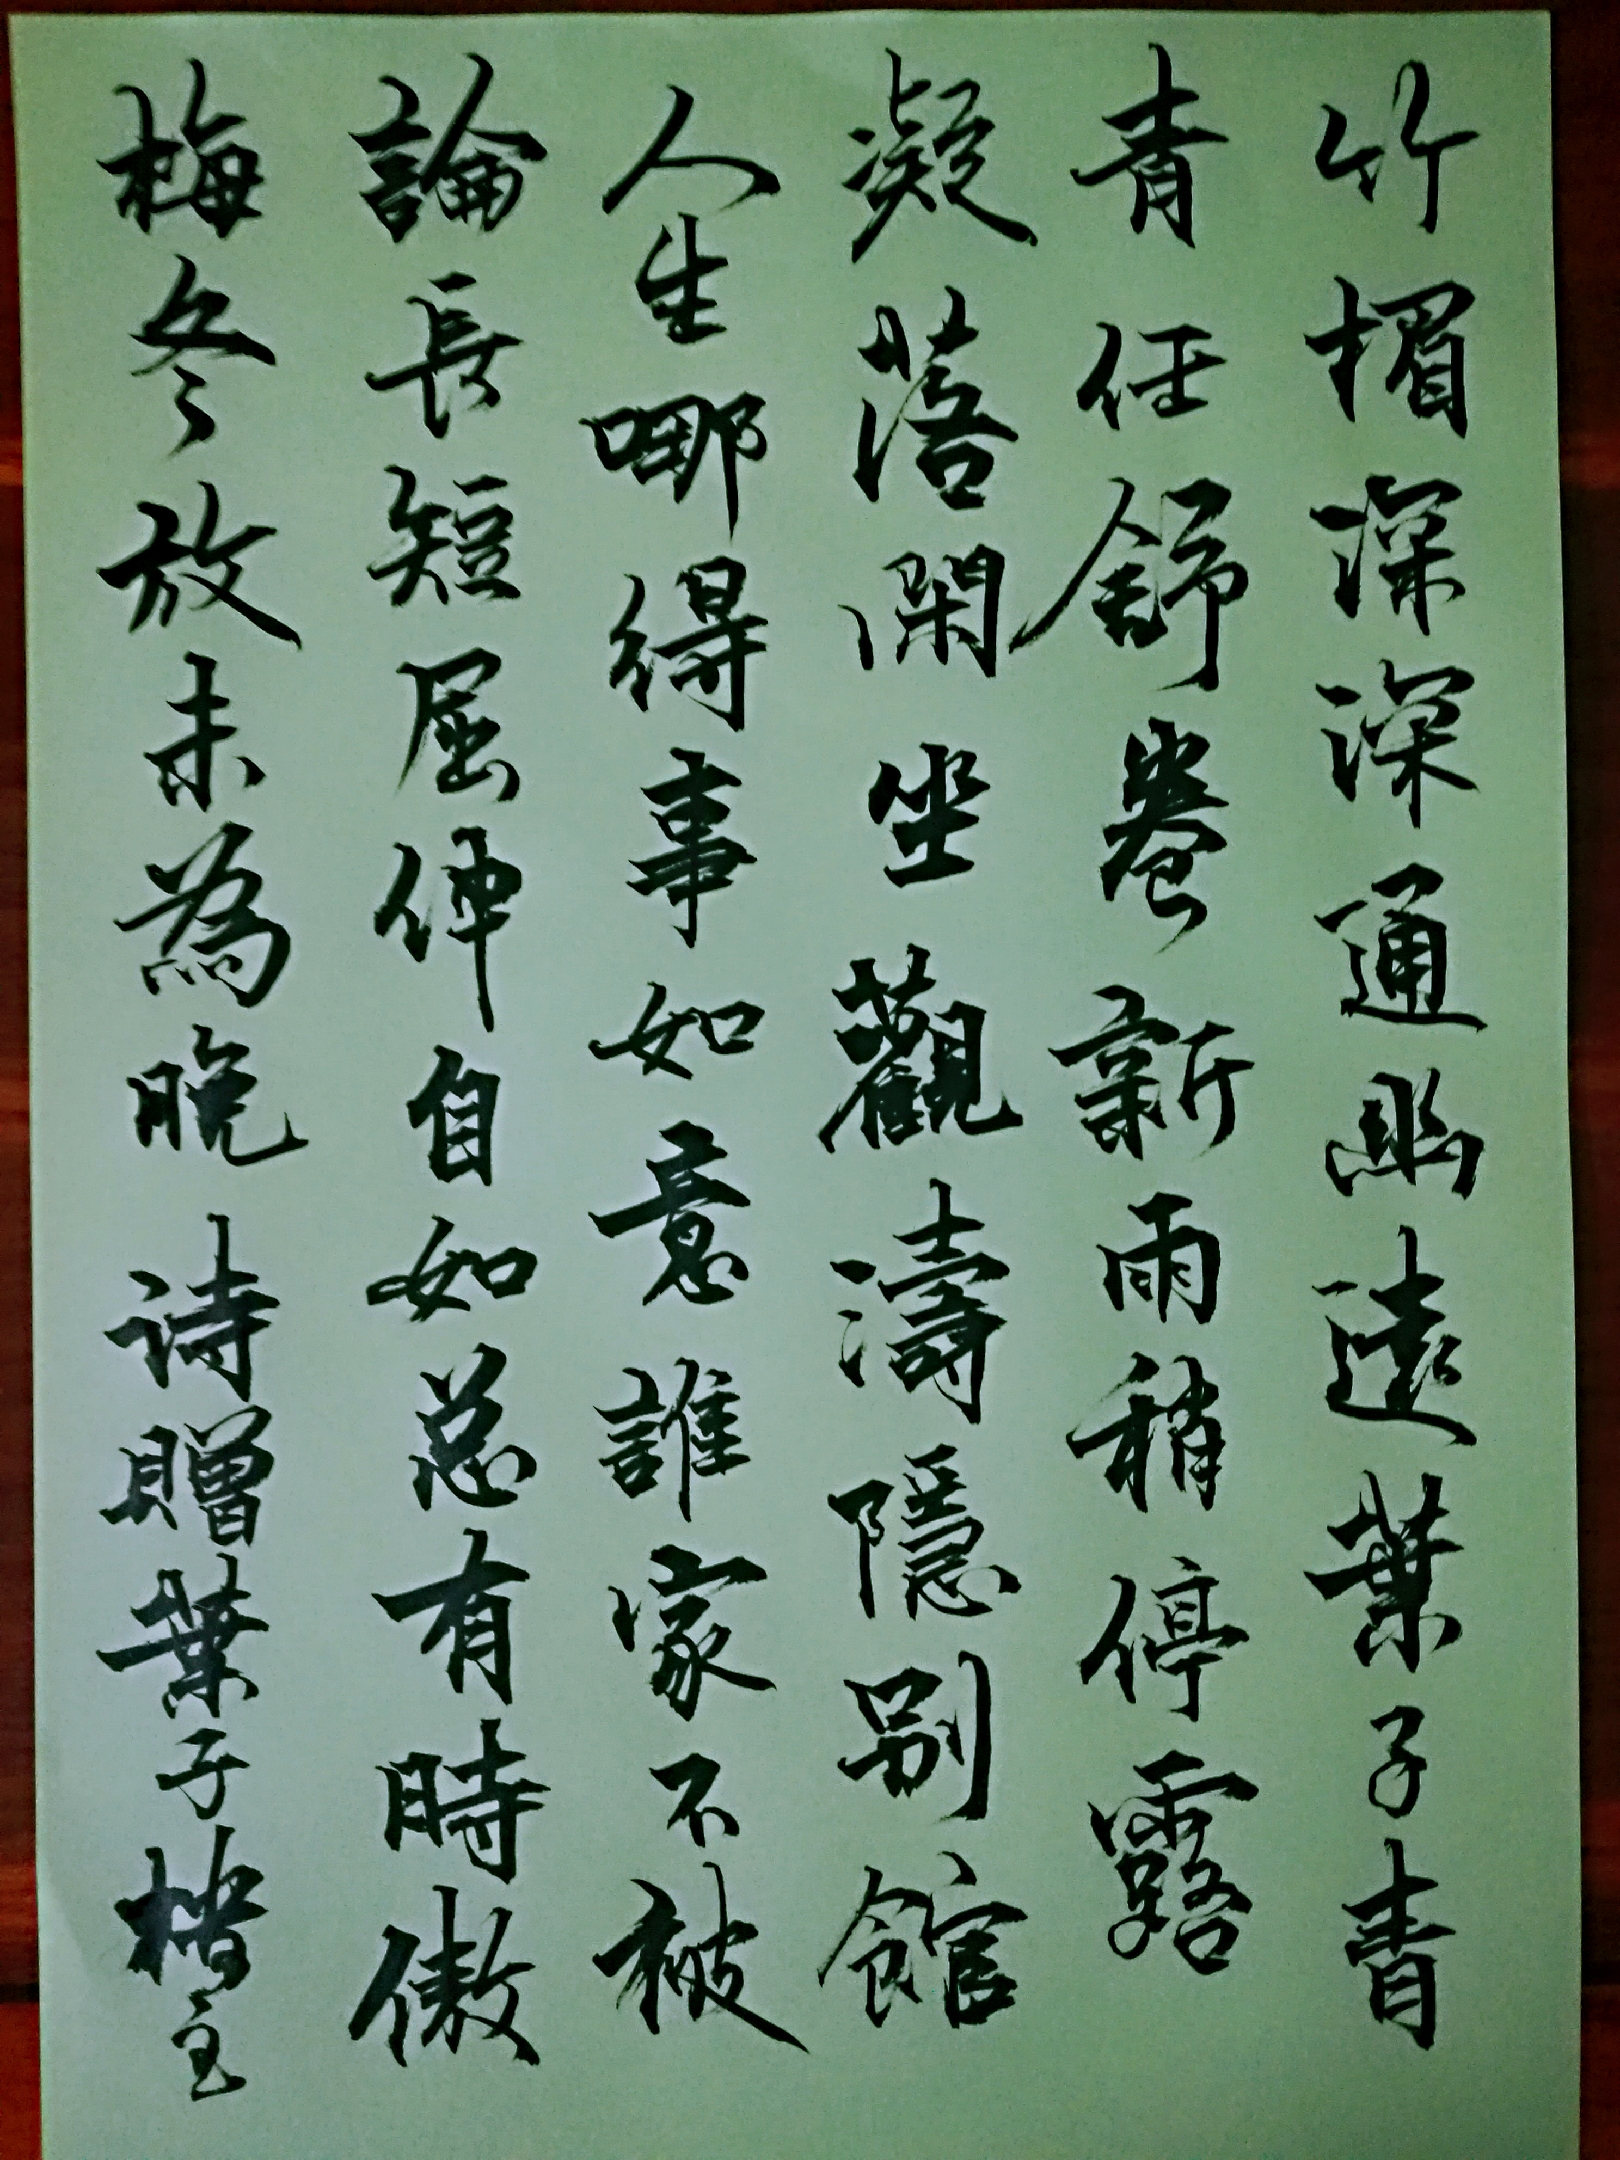 竹楣深深通幽遠葉子青
青任舒卷新雨稍停露
凝落閑坐觀濤隱別館
人生哪得事如意誰家不被
論長短屈伸自如总有時傲
梅冬放未為晚 诗贈葉子主